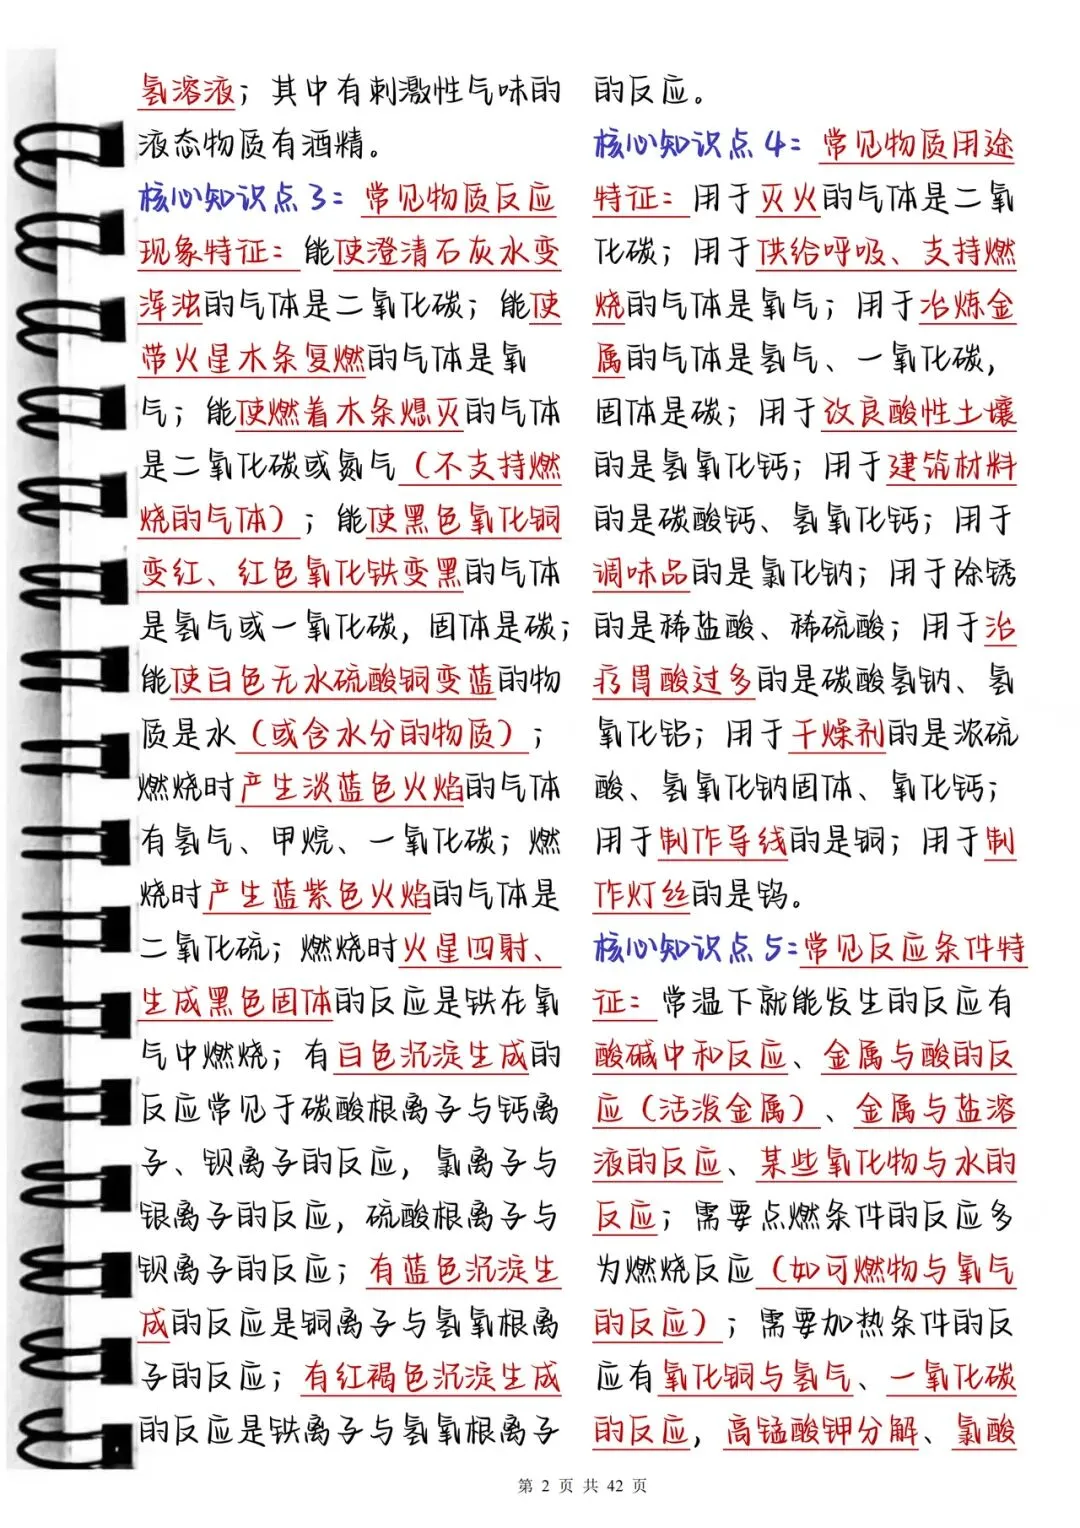 氢溶液；其中有刺激性气味的
液态物质有酒精。
核心知识点3：常见物质反应
现象特征：能使澄清石灰水变
浑浊的气体是二氧化碳；能使
带火星木条复燃的气体是氧
气；能使燃着木条熄灭的气体
是二氧化碳或氮气（不支持燃
烧的气体）；能使黑色氧化铜
变红、红色氧化铁变黑的气体
是氢气或一氧化碳，固体是碳；
能使白色无水硫酸铜变蓝的物
质是水（或含水分的物质）；
燃烧时产生淡蓝色火焰的气体
有氢气、甲烷、一氧化碳；燃
烧时产生蓝紫色火焰的气体是
二氧化硫；燃烧时火星四射、
生成黑色固体的反应是铁在氧
气中燃烧；有白色沉淀生成的
反应常见于碳酸根离子与钙离
子、钡离子的反应，氯离子与
银离子的反应，硫酸根离子与
钡离子的反应；有蓝色沉淀生
成的反应是铜离子与氢氧根离
子的反应；有红褐色沉淀生成
的反应是铁离子与氢氧根离子
的反应。
核心知识点4：常见物质用途
特征：用于灭火的气体是二氧
化碳；用于供给呼吸、支持燃
烧的气体是氧气；用于冶炼金
属的气体是氢气、一氧化碳，
固体是碳；用于改良酸性土壤
的是氢氧化钙；用于建筑材料
的是碳酸钙、氢氧化钙；用于
调味品的是氯化钠；用于除锈
的是稀盐酸、稀硫酸；用于治
疗胃酸过多的是碳酸氢钠、氢
氧化铝；用于干燥剂的是浓硫
酸、氢氧化钠固体、氧化钙；
用于制作导线的是铜；用于制
作灯丝的是钨。
核心知识点5：常见反应条件特
征：常温下就能发生的反应有
酸碱中和反应、金属与酸的反
应（活泼金属）、金属与盐溶
液的反应、某些氧化物与水的
反应；需要点燃条件的反应多
为燃烧反应（如可燃物与氧气
的反应）；需要加热条件的反
应有氧化铜与氢气、一氧化碳
的反应，高锰酸钾分解、氯酸
第 2 页 共 42 页